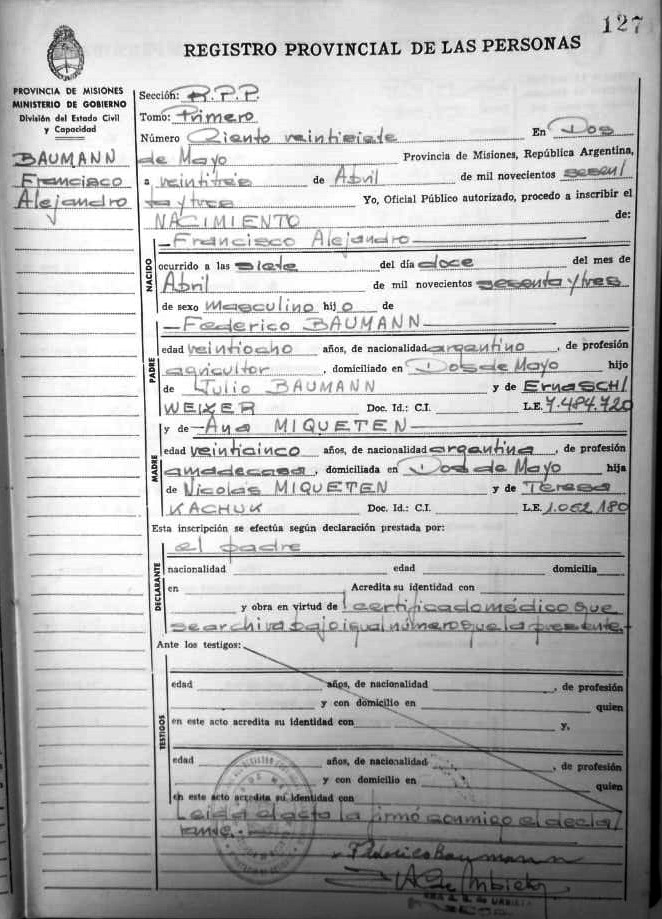 127
REGISTRO PROVINCIAL DE LAS PERSONAS
PROVINCIA DE MISIONES
MINISTERIO DE GOBIERNO
División del Estado Civil
y Capacidad
BAUMANN
Francisco
Alejandro
Sección: R.P.P.
Tomo: Primero
Número Ciento veintisiete En Dos
de Mayo Provincia de Misiones, República Argentina,
a veintitrés de Abril de mil novecientos sesen
ta y tres Yo, Oficial Público autorizado, procedo a inscribir el
NACIMIENTO de:
NACIDO
Francisco Alejandro
ocurrido a las siete del día doce del mes de
Abril de mil novecientos sesenta y tres
de sexo masculino hijo de
PADRE
Federico BAUMANN
edad veintiocho años, de nacionalidad argentino, de profesión
agricultor, domiciliado en Dos de Mayo hijo
de Julio BAUMANN y de Erna SCHI
WEIXER Doc. Id.: C.I. L.E. 7.484.720
MADRE
y de Ana MIQUETEN
edad veinticinco años, de nacionalidad argentina, de profesión
ama de casa, domiciliada en Dos de Mayo hija
de Nicolás MIQUETEN y de Teresa
KACHUK Doc. Id.: C.I. L.E. 1.052.180
Esta inscripción se efectúa según declaración prestada por:
DECLARANTE
el padre
nacionalidad edad domicilia
en Acredita su identidad con
y obra en virtud de 1 certificado médico que
se archiva bajo igual número que la presente.
Ante los testigos:
TESTIGOS
edad años, de nacionalidad, de profesión
y con domicilio en quien
en este acto acredita su identidad con y,
edad años, de nacionalidad, de profesión
y con domicilio en quien
en este acto acredita su identidad con
Leída el acta la firmó conmigo el decla
rante.
Federico Baumann